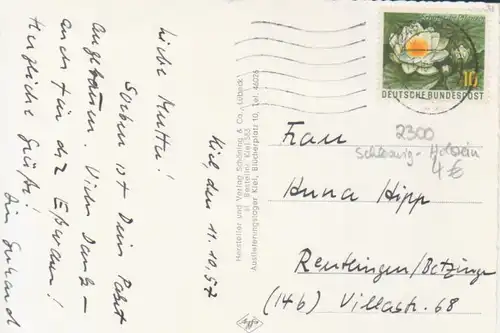 Kiel, den 11.10.57
Liebe Mutter!
Soeben ist Dein Paket
angekommen. Vielen Dank –
auch für die Esswaren!
Herzliche Grüße!
Dein Gerhard
Hersteller und Verlag Schöning & Co., Lübeck
Bestellnr. Kiel 383
Auslieferungslager Kiel, Blücherplatz 10, Tel. 46076
Agfa
10
DEUTSCHE BUNDESPOST
2300
Schleswig-Holstein
4 €
Frau
Anna Hipp
Reutlingen/Betzingen
(14b) Villastr. 68